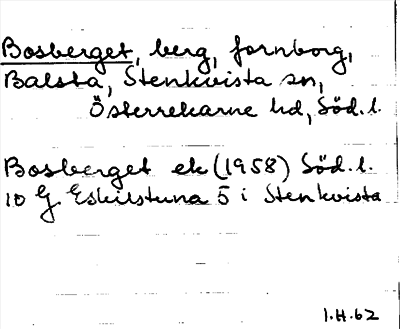 Bosberget, berg, fornborg,
Balsta, Stenkvista sn,
Österrekarne hd, Söd. l.
Bosberget ek (1958) Söd. l.
10 G Eskilstuna 5 i Stenkvista
I.H.62